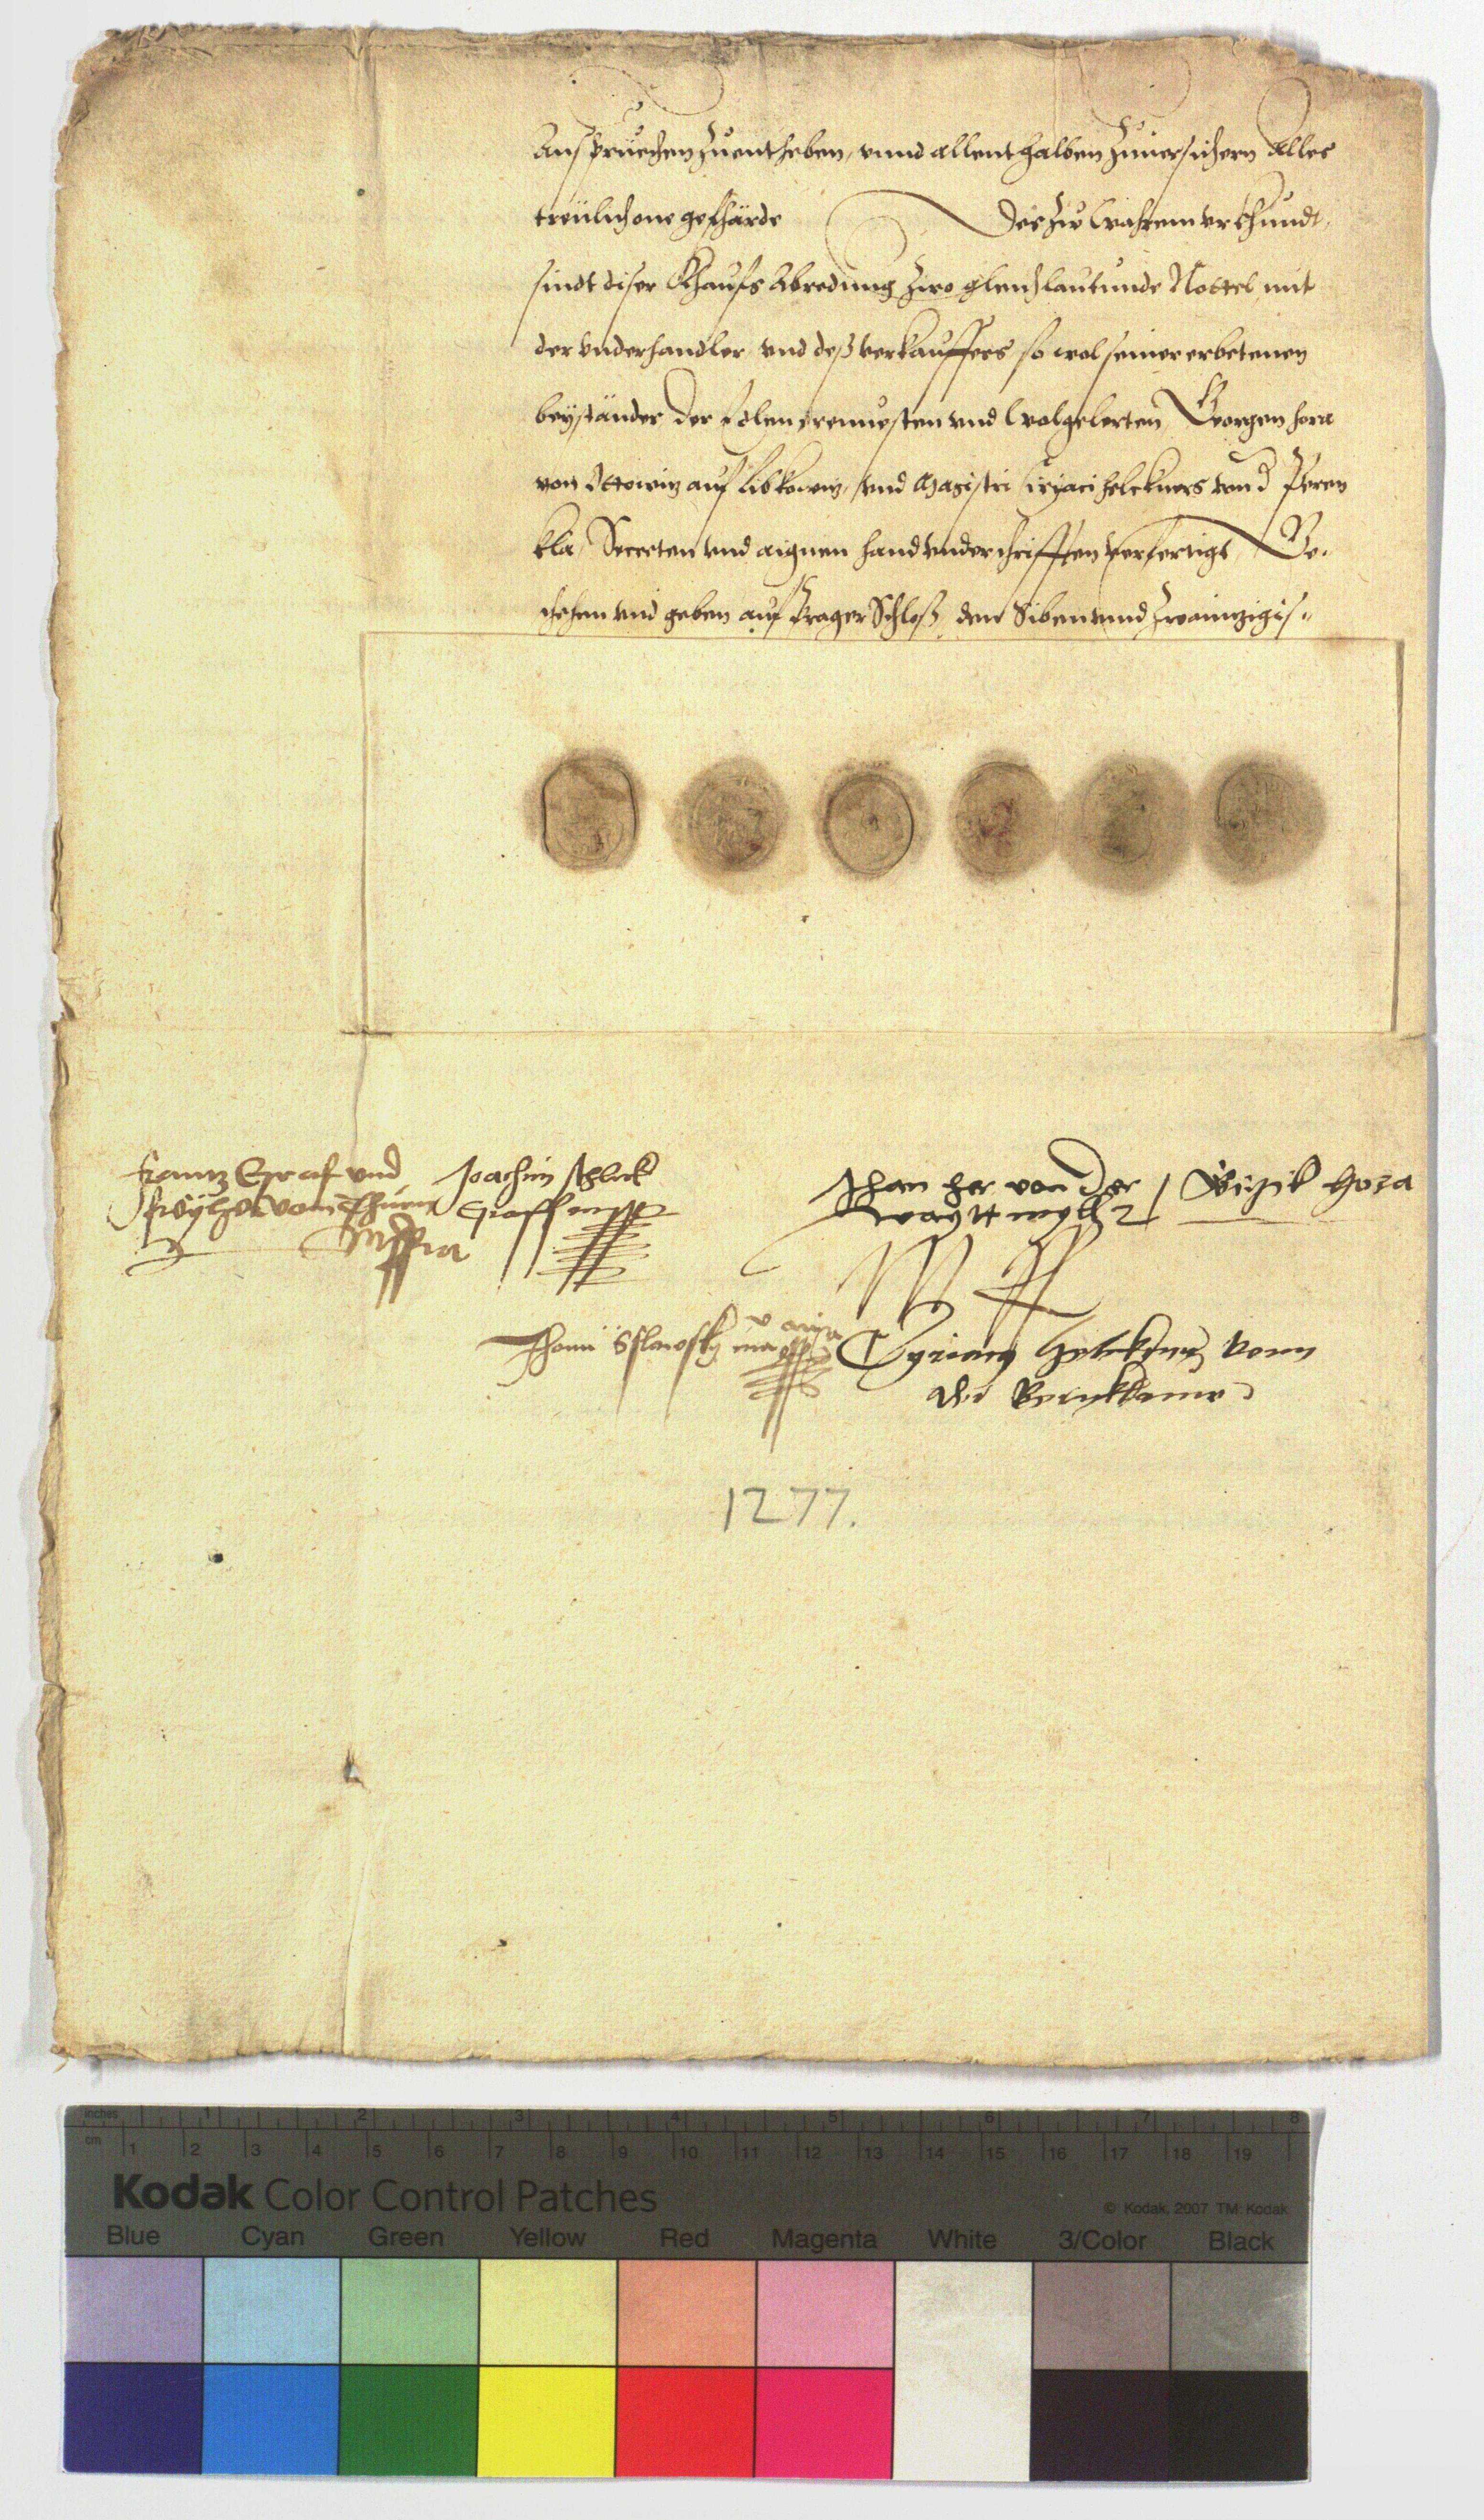 Anspruechen zuentheben, vnnd allenthalben zuuersichern Alles
treülich one gefhärde Des zw wahrem vrkhundt,
sindt diser Khaufs Abredung zwo gleichlautunde Nottel mit
der vnderhandler vnd deß verkauffers so wol seiner erbetenen
beyständer Der Edlen Erenuesten vnd Wolgelerten Georgen Hora
von Ottowiz auf Libkowiz, vnd Magistri Ciriaci Helckners von d Peren
kla, Secreten vnd aignen hand vnderschrifften verfertigt, Be-
schehen vnd geben auf Prager Schloß den Siben vnnd zwainzigis-
Frantz Graf und
Freyher vom Thurn
Joachim Schlick
Graff
Jhan her von Der
Waytmyll
Girzik Hora
Cyriacus Helckner vonn
der Bernklaue
1277.
inches 1 2 3 4 5 6 7 8
cm 1 2 3 4 5 6 7 8 9 10 11 12 13 14 15 16 17 18 19
Kodak Color Control Patches
© Kodak, 2007 TM: Kodak
Blue Cyan Green Yellow Red Magenta White 3/Color Black